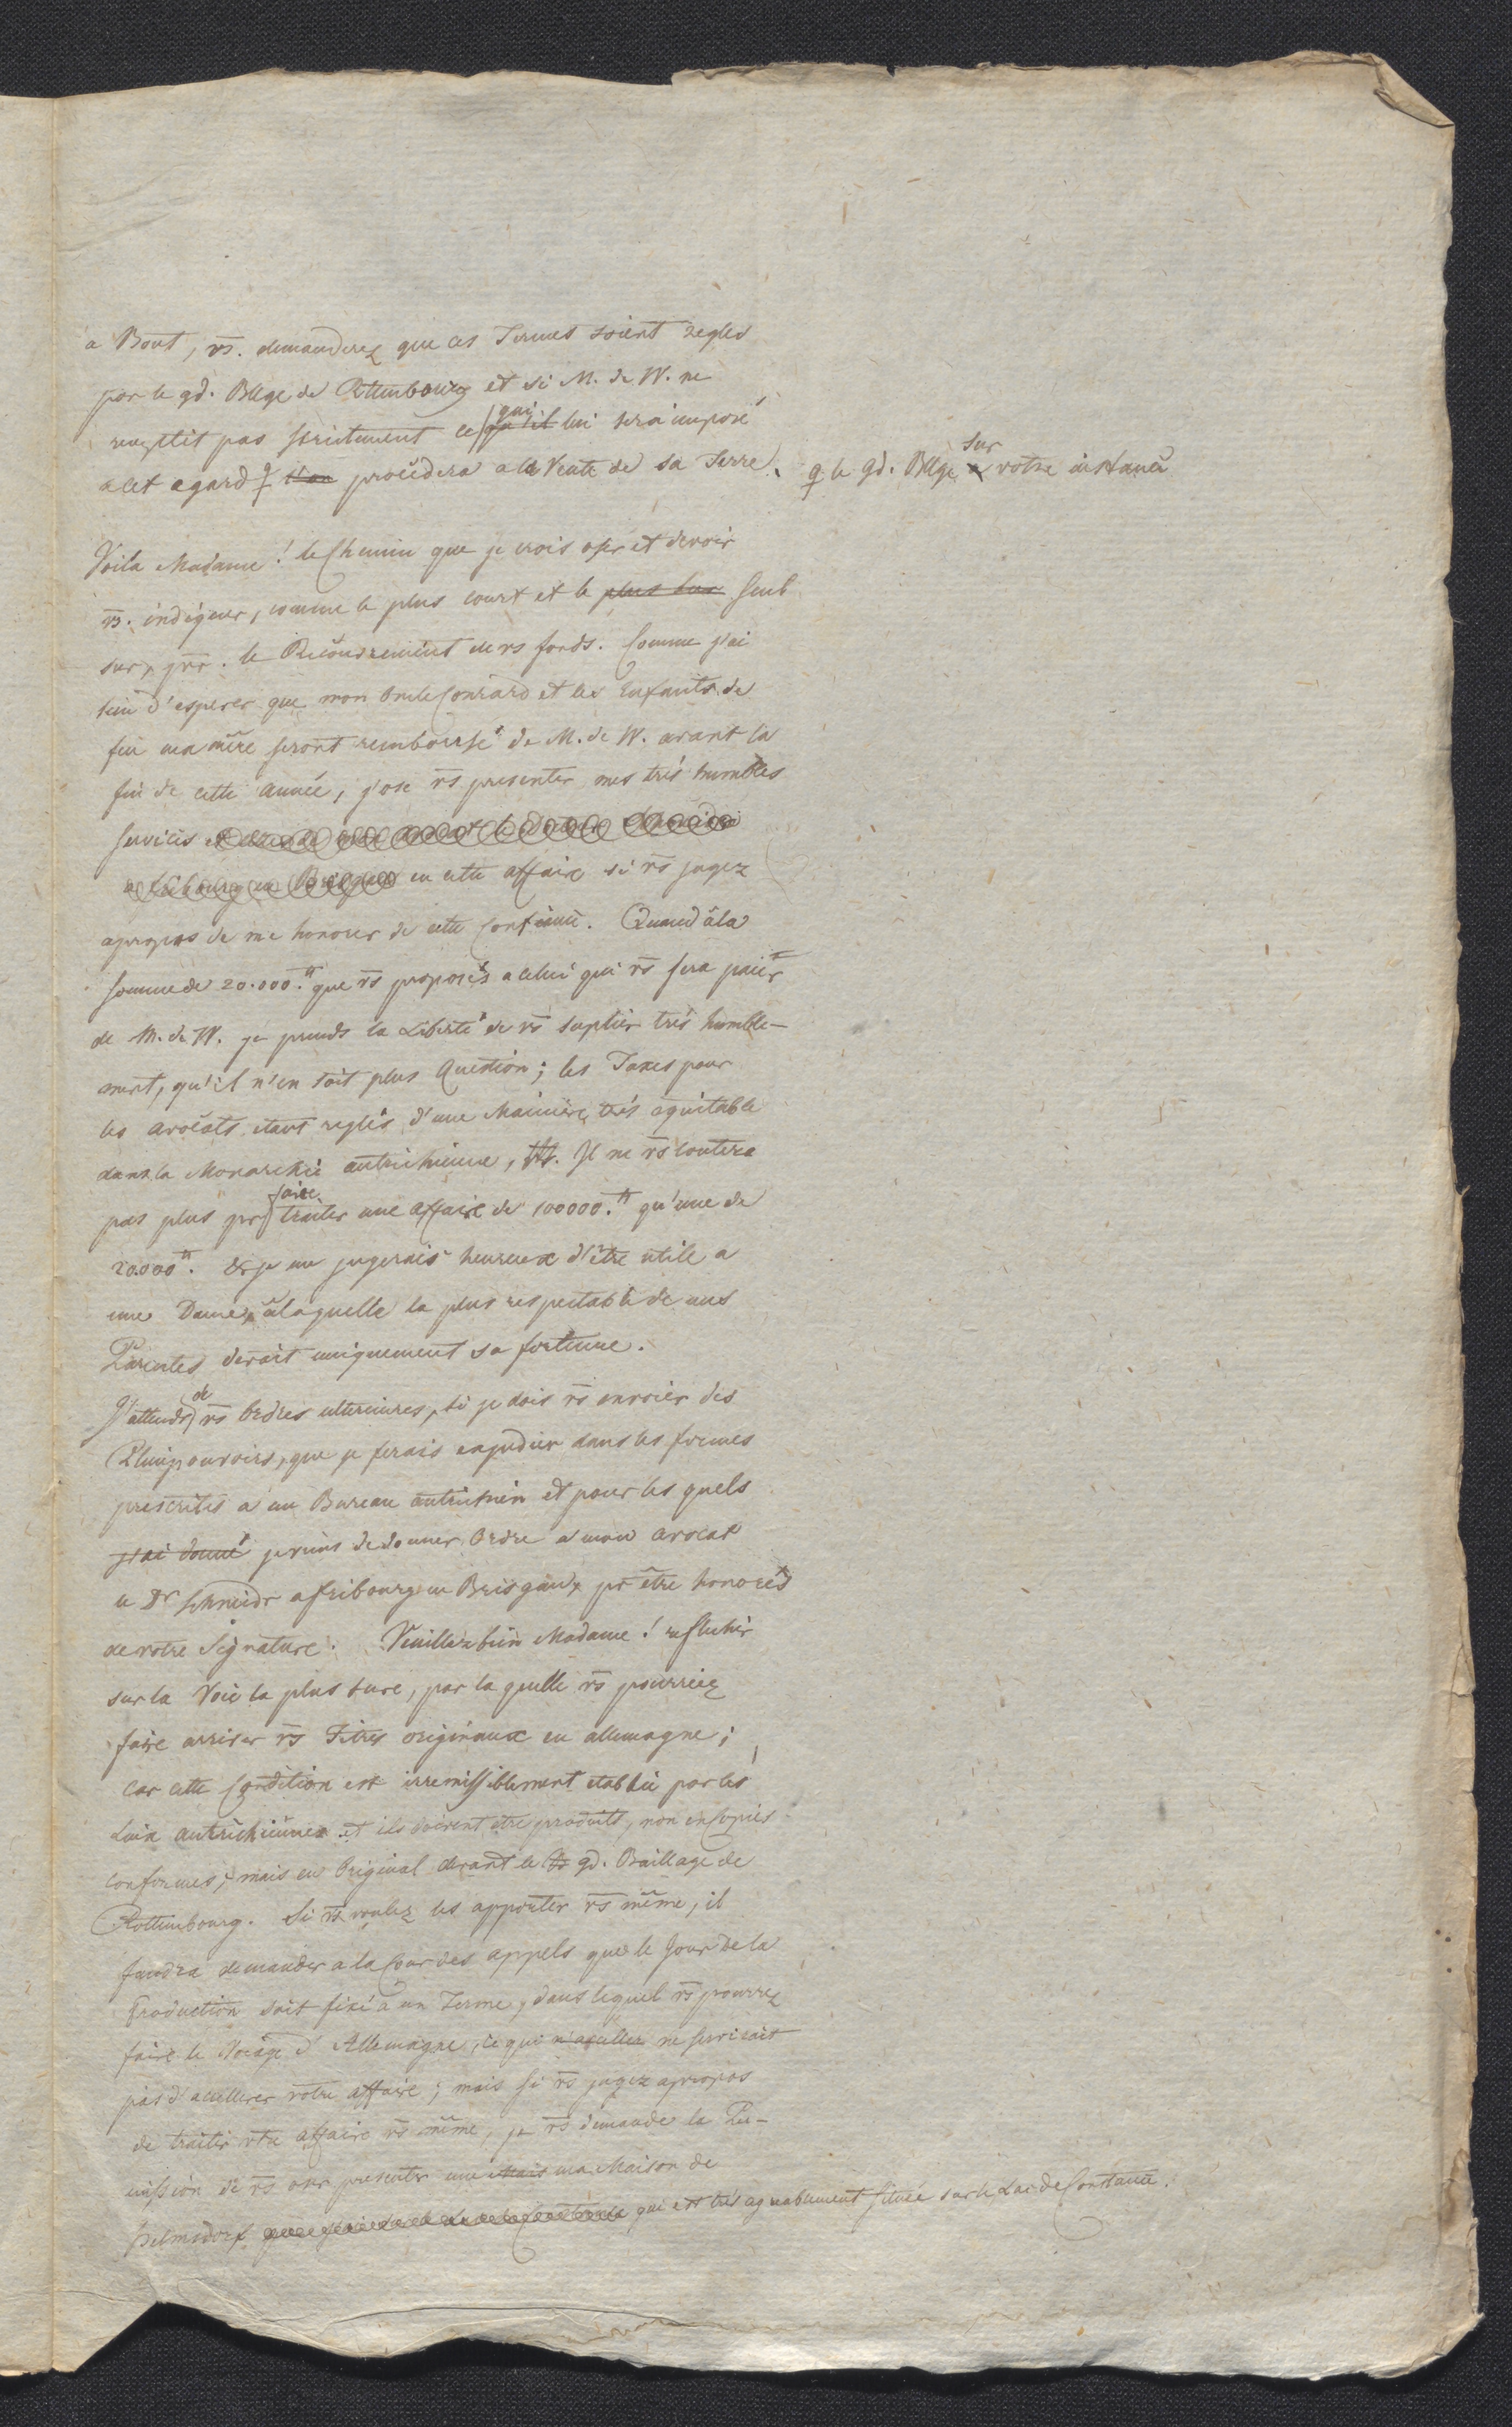 a Bout, vs. demanderez que ces Termes soient reglés
par le gd. Bllge de Rottenbourg et si M. de W. ne
remplit pas strictement ce qui qu'il lui sera imposé
a cet egard l'on procedera a la Vente de sa Terre.
q le gd. Bllge a sur votre instance
Voila Madame! le Chemin que je crois oser et devoir
vs. indiquer, comme le plus court et le plus sur seul
sur, pr. le Recouvrement de vs fonds. Comme j'ai
lieu d'esperer que mon Oncle Conrard et les Enfants de
feu ma mere seront remboursé de M. de W. avant la
fin de cette année, j'ose vs presenter mes trés humbles
services
en cette affaire si vs jugez
apropos de me honorer de cette confience. Quand à la
somme de 20.000. tt que vs proposés a celui qui vs fera paier
de M. de W. je prends la Liberté de vs suplier trés humble-
ment, qu'il n'en soit plus Question; les Taxes pour
les avocats etant reglés d'une Maniére trés equitable
dans la Monarchie autrichienne, Il ne vs coutera
pas plus pr faire traiter une affaire de 100000. tt qu'une de
20.000 tt. & je me jugerais heureux d'être utile a
une Dame, à laquelle la plus respectable de mes
Parentes devait uniquement sa fortune.
J'attends de vs Ordres ulterieures, si je dois vs envoier des
Pleinpouvoirs, que je ferais expedier dans les formes
prescrites a un Bureau autrichien et pour les quels
j'ai donné je viens de donner Ordre a mon avocat
le Dr Schneidr a fribourg en Brisgau, pr être honorés
de votre Signature. Veuillez bien Madame! reflechir
sur la Voie la plus sure, par la quelle vs pourriez
faire arriver vs Titres originaux en allemagne;
car cette Condition est irremissiblement etablie par les
Loix autrichiennes et ils doivent etre produits, non en Copies
conformes, mais en Original devant le gd. Baillage de
Rottenbourg. Si vs voulez les apporter vs même, il
faudra demander a la Cour des appels que le Jour de la
Production soit fixé a un Terme, dans lequel vs pourrez
faire le Voiage d'Allemagne, ce qui ne serviroit
pas d'accellerer votre affaire; mais si vs jugez apropos
de traiter vtre affaire vs même, je vs demande la Per-
mission de vs oser presenter une Mais ma Maison de
Helmsdorf qui est trés agreablement située sur le Lac de Constance.